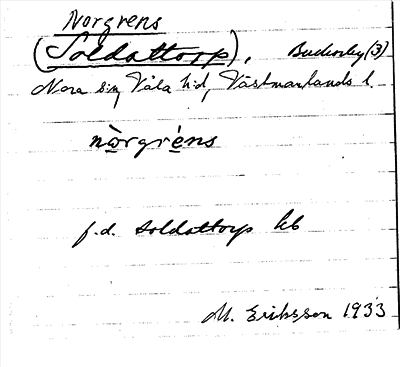 Norgrens
(Soldattorp), Buckarby (3)
Nora sn, Våla hd, Västmanlands l.
nòrgréns
f.d. soldattorp
M. Eriksson 1933